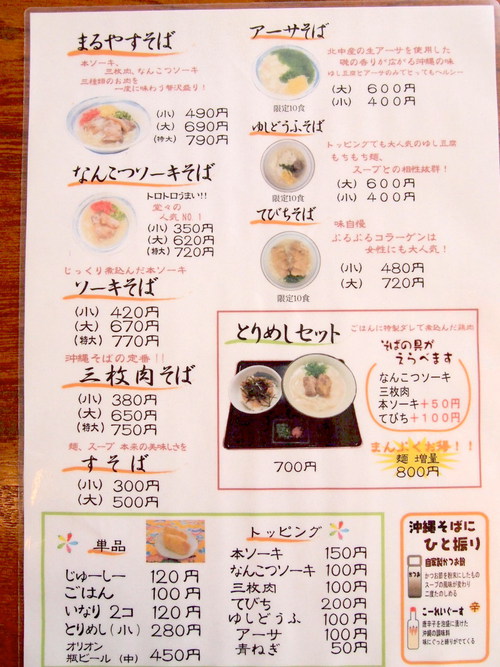 まるやすそば
本ソーキ、
三枚肉、なんこつソーキ
三種類のお肉を
一度に味わう贅沢盛り！
(小) 490円
(大) 690円
(特大) 790円
なんこつソーキそば
トロトロうまい!!
堂々の
人気NO！
(小) 350円
(大) 620円
(特大) 720円
じっくり煮込んだ本ソーキ
ソーキそば
(小) 420円
(大) 670円
(特大) 770円
沖縄そばの定番！！
三枚肉そば
(小) 380円
(大) 650円
(特大) 750円
麺、スープ 本来の美味しさを
すそば
(小) 300円
(大) 500円
アーサそば
北中産の生アーサを使用した
磯の香りが広がる沖縄の味
ゆし豆腐とアーサのみでとってもヘルシー
限定10食
(大) 600円
(小) 400円
ゆしどうふそば
トッピングでも大人気のゆし豆腐
もちもち麺、
スープとの相性抜群！
限定10食
(大) 600円
(小) 400円
てびちそば
味自慢
ぷるぷるコラーゲンは
女性にも大人気！
限定10食
(小) 480円
(大) 720円
とりめしセット
ごはんに特製ダレで煮込んだ鶏肉
そばの具が
えらべます
なんこつソーキ
三枚肉
本ソーキ+50円
てびち+100円
700円
まんぷくお得！！
麺 増量
800円
単品
じゅーしー 120円
ごはん 100円
いなり 2コ 120円
とりめし(小) 280円
オリオン
瓶ビール(中) 450円
トッピング
本ソーキ 150円
なんこつソーキ 100円
三枚肉 100円
てびち 200円
ゆしどうふ 100円
アーサ 100円
青ねぎ 50円
沖縄そばに
ひと振り
自家製かつお粉
かつお
かつお節を粉末にしたもの
スープの風味が変わり
二度たのしめる
こーれいぐーす 辛
唐辛子を泡盛に漬けた
沖縄の調味料
味にぐっと締りがでてくる